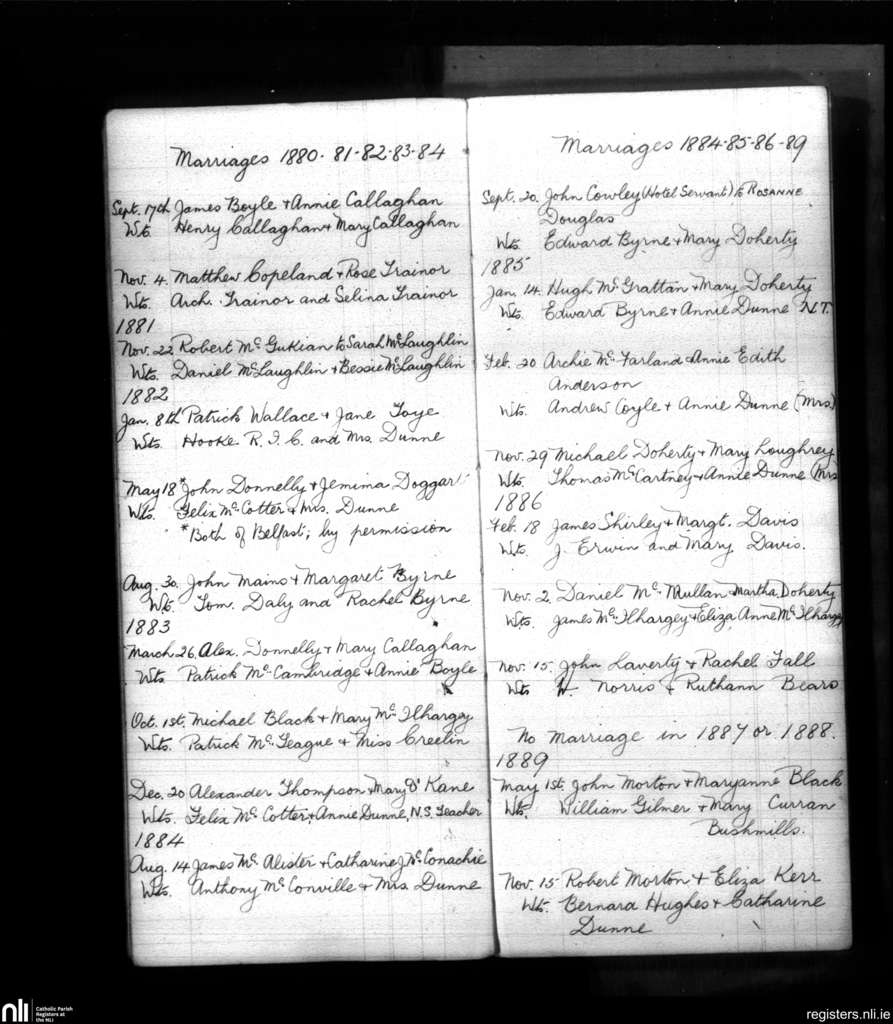 Marriages 1880-81-82-83-84
Sept. 17th James Boyle + Annie Callaghan
Wts. Henry Callaghan + Mary Callaghan
Nov. 4. Matthew Copeland + Rose Trainor
Wts. Arch. Trainor and Selina Trainor
1881
Nov. 22 Robert Mc Gukian to Sarah McLaughlin
Wts. Daniel McLaughlin + Bessie McLaughlin
1882
Jan. 8th Patrick Wallace + Jane Toye
Wts. Hooke R.I.C. and Mrs. Dunne
May 18 *John Donnelly + Jemima Doggart
Wts. Felix McCotter + Mrs. Dunne
*Both of Belfast; by permission
Aug. 30. John Mains + Margaret Byrne
Wts. Tom. Daly and Rachel Byrne
1883
March 26 Alex. Donnelly + Mary Callaghan
Wts. Patrick Mc Cambridge + Annie Boyle
Oct. 1st. Michael Black + Mary Mc Ilhargey
Wts. Patrick Mc Teague + Miss Creelin
Dec. 20 Alexander Thompson + Mary O' Kane
Wts. Felix McCotter + Annie Dunne, N.S. Teacher
1884
Aug. 14 James Mc Alister + Catharine J. McConachie
Wts. Anthony McConville + Mrs. Dunne
Marriages 1884-85-86-89
Sept. 20. John Cowley (Hotel Servant) to ROSANNE
Douglas
Wts. Edward Byrne + Mary Doherty
1885
Jan. 14. Hugh McGrattan + Mary Doherty
Wts. Edward Byrne + Annie Dunne N.T.
Feb. 20 Archie McFarland + Annie Edith
Anderson
Wts. Andrew Coyle + Annie Dunne (Mrs)
Nov. 29 Michael Doherty + Mary Loughrey
Wts. Thomas McCartney + Annie Dunne (Mrs
1886
Feb. 18 James Shirley + Margt. Davis
Wts. J. Erwin and Mary Davis.
Nov. 2. Daniel Mc Mullan + Martha Doherty
Wts. James Mc Ilhargey + Eliza Anne Mc Ilhargey
Nov. 15. John Laverty + Rachel Fall
Wts H. Norris + Ruthann Bears
No Marriage in 1887 or 1888.
1889
May 1st. John Morton + Maryanne Black
Wts. William Gilmer + Mary Curran
Bushmills.
Nov. 15 Robert Morton + Eliza Kerr
Wts. Bernard Hughes + Catharine
Dunne
nli
Catholic Parish
Registers at
the NLI
registers.nli.ie